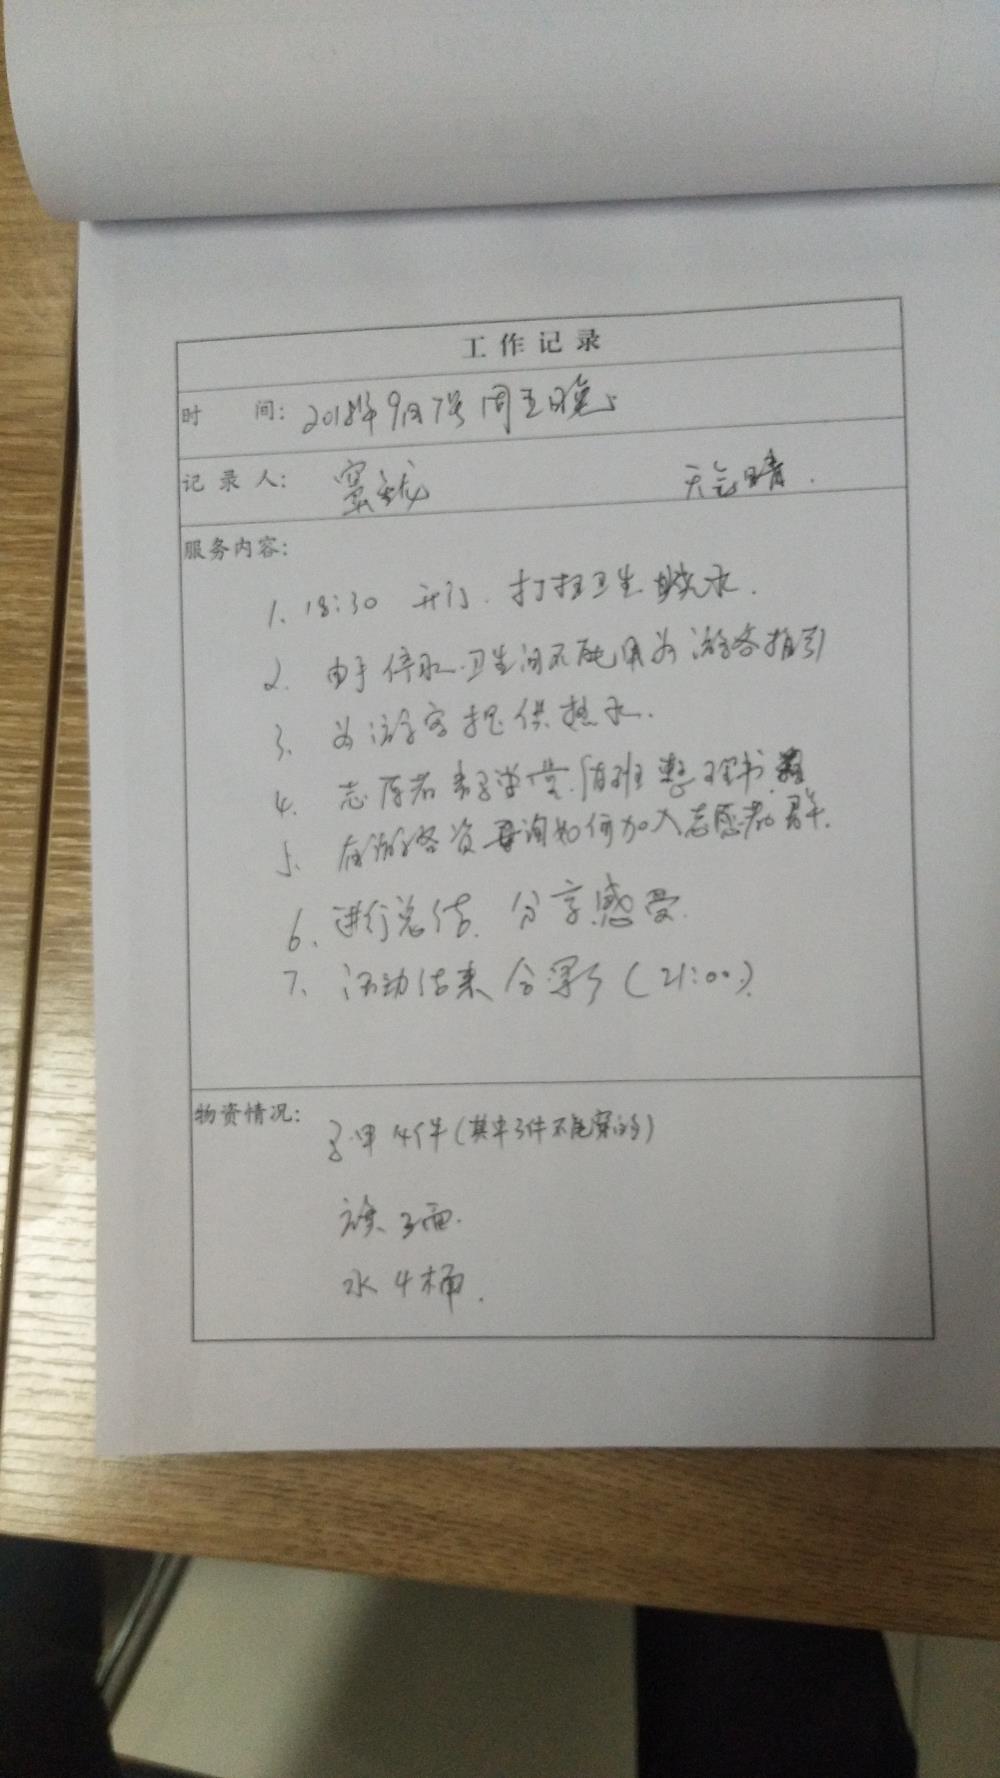 工作记录
时 间: 2018年9月7号 周五晚上
记录人: 窦龙 天气晴.
服务内容:
1. 18:30 开门. 打扫卫生 烧水.
2. 由于停水.卫生间不能用为游客指引
3. 为游客提供热水.
4. 志愿者 学堂. 值班 整理书
5. 有游客资 询如何加入志愿者群.
6. 进行总结. 分享感受.
7. 活动结束 合影 (21:00).
物资情况:
马甲 4件(其中3件不能穿的)
旗 3面.
水 4桶.